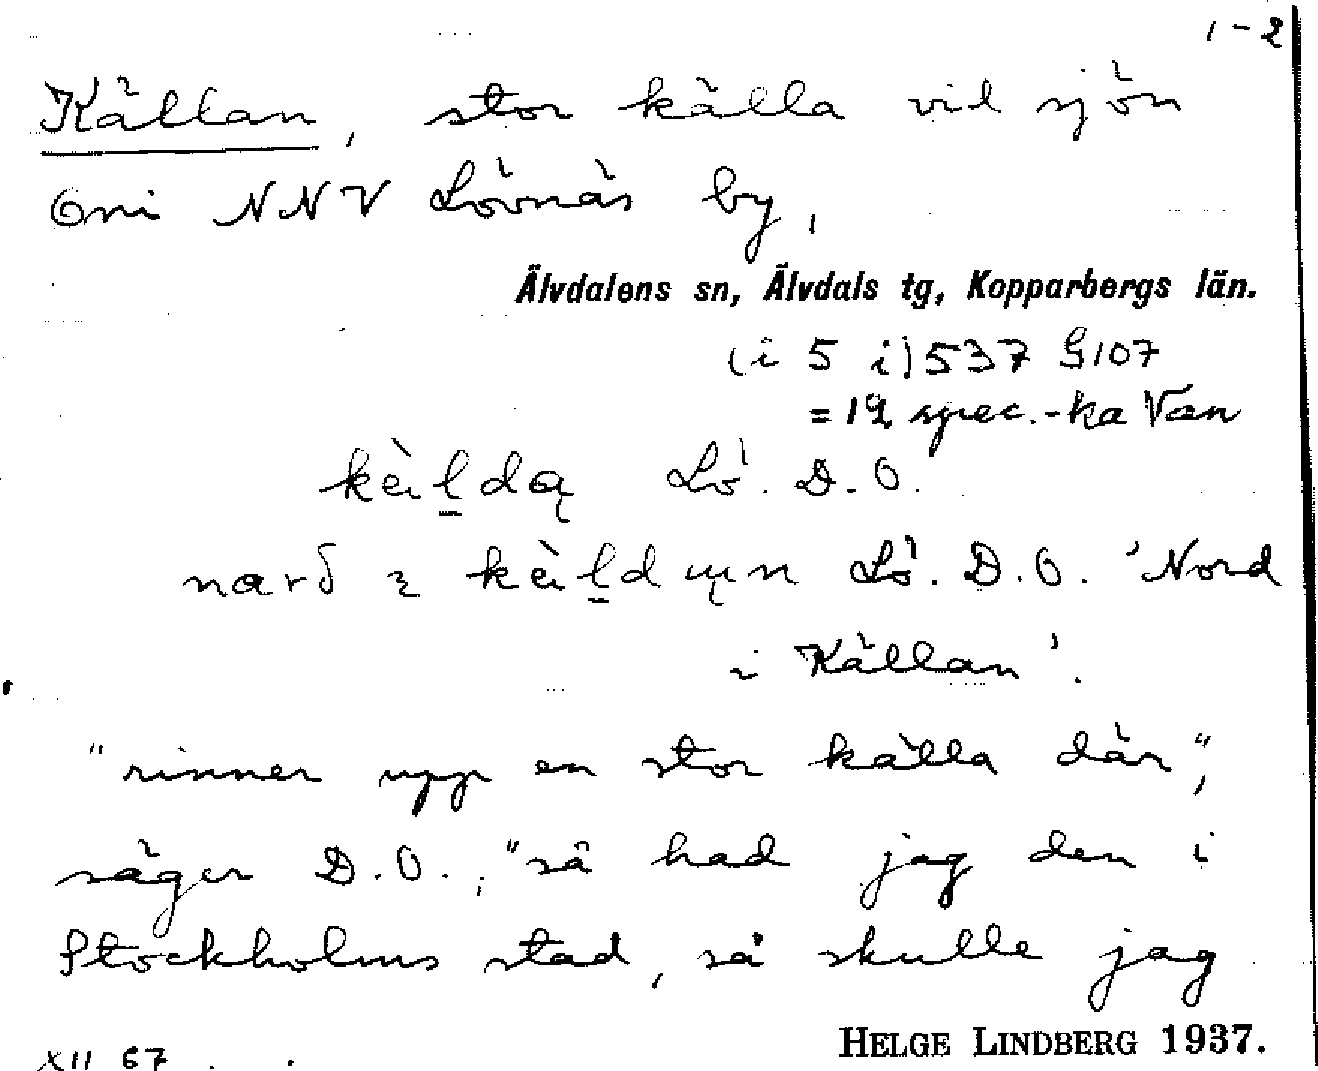 1-2
Källan, stor källa vid sjön
6 mi NNV Lövnäs by,
Älvdalens sn, Älvdals tg, Kopparbergs län.
(i 5 i) 537 G107
= 19 spec.-ka Van
Lö. D.O.
Lö. D.O. 'Nord
i Källan'.
"rinner upp en stor källa där",
säger D.O.; "så had jag den i
Stockholms stad, så skulle jag
HELGE LINDBERG 1937.
XII 67